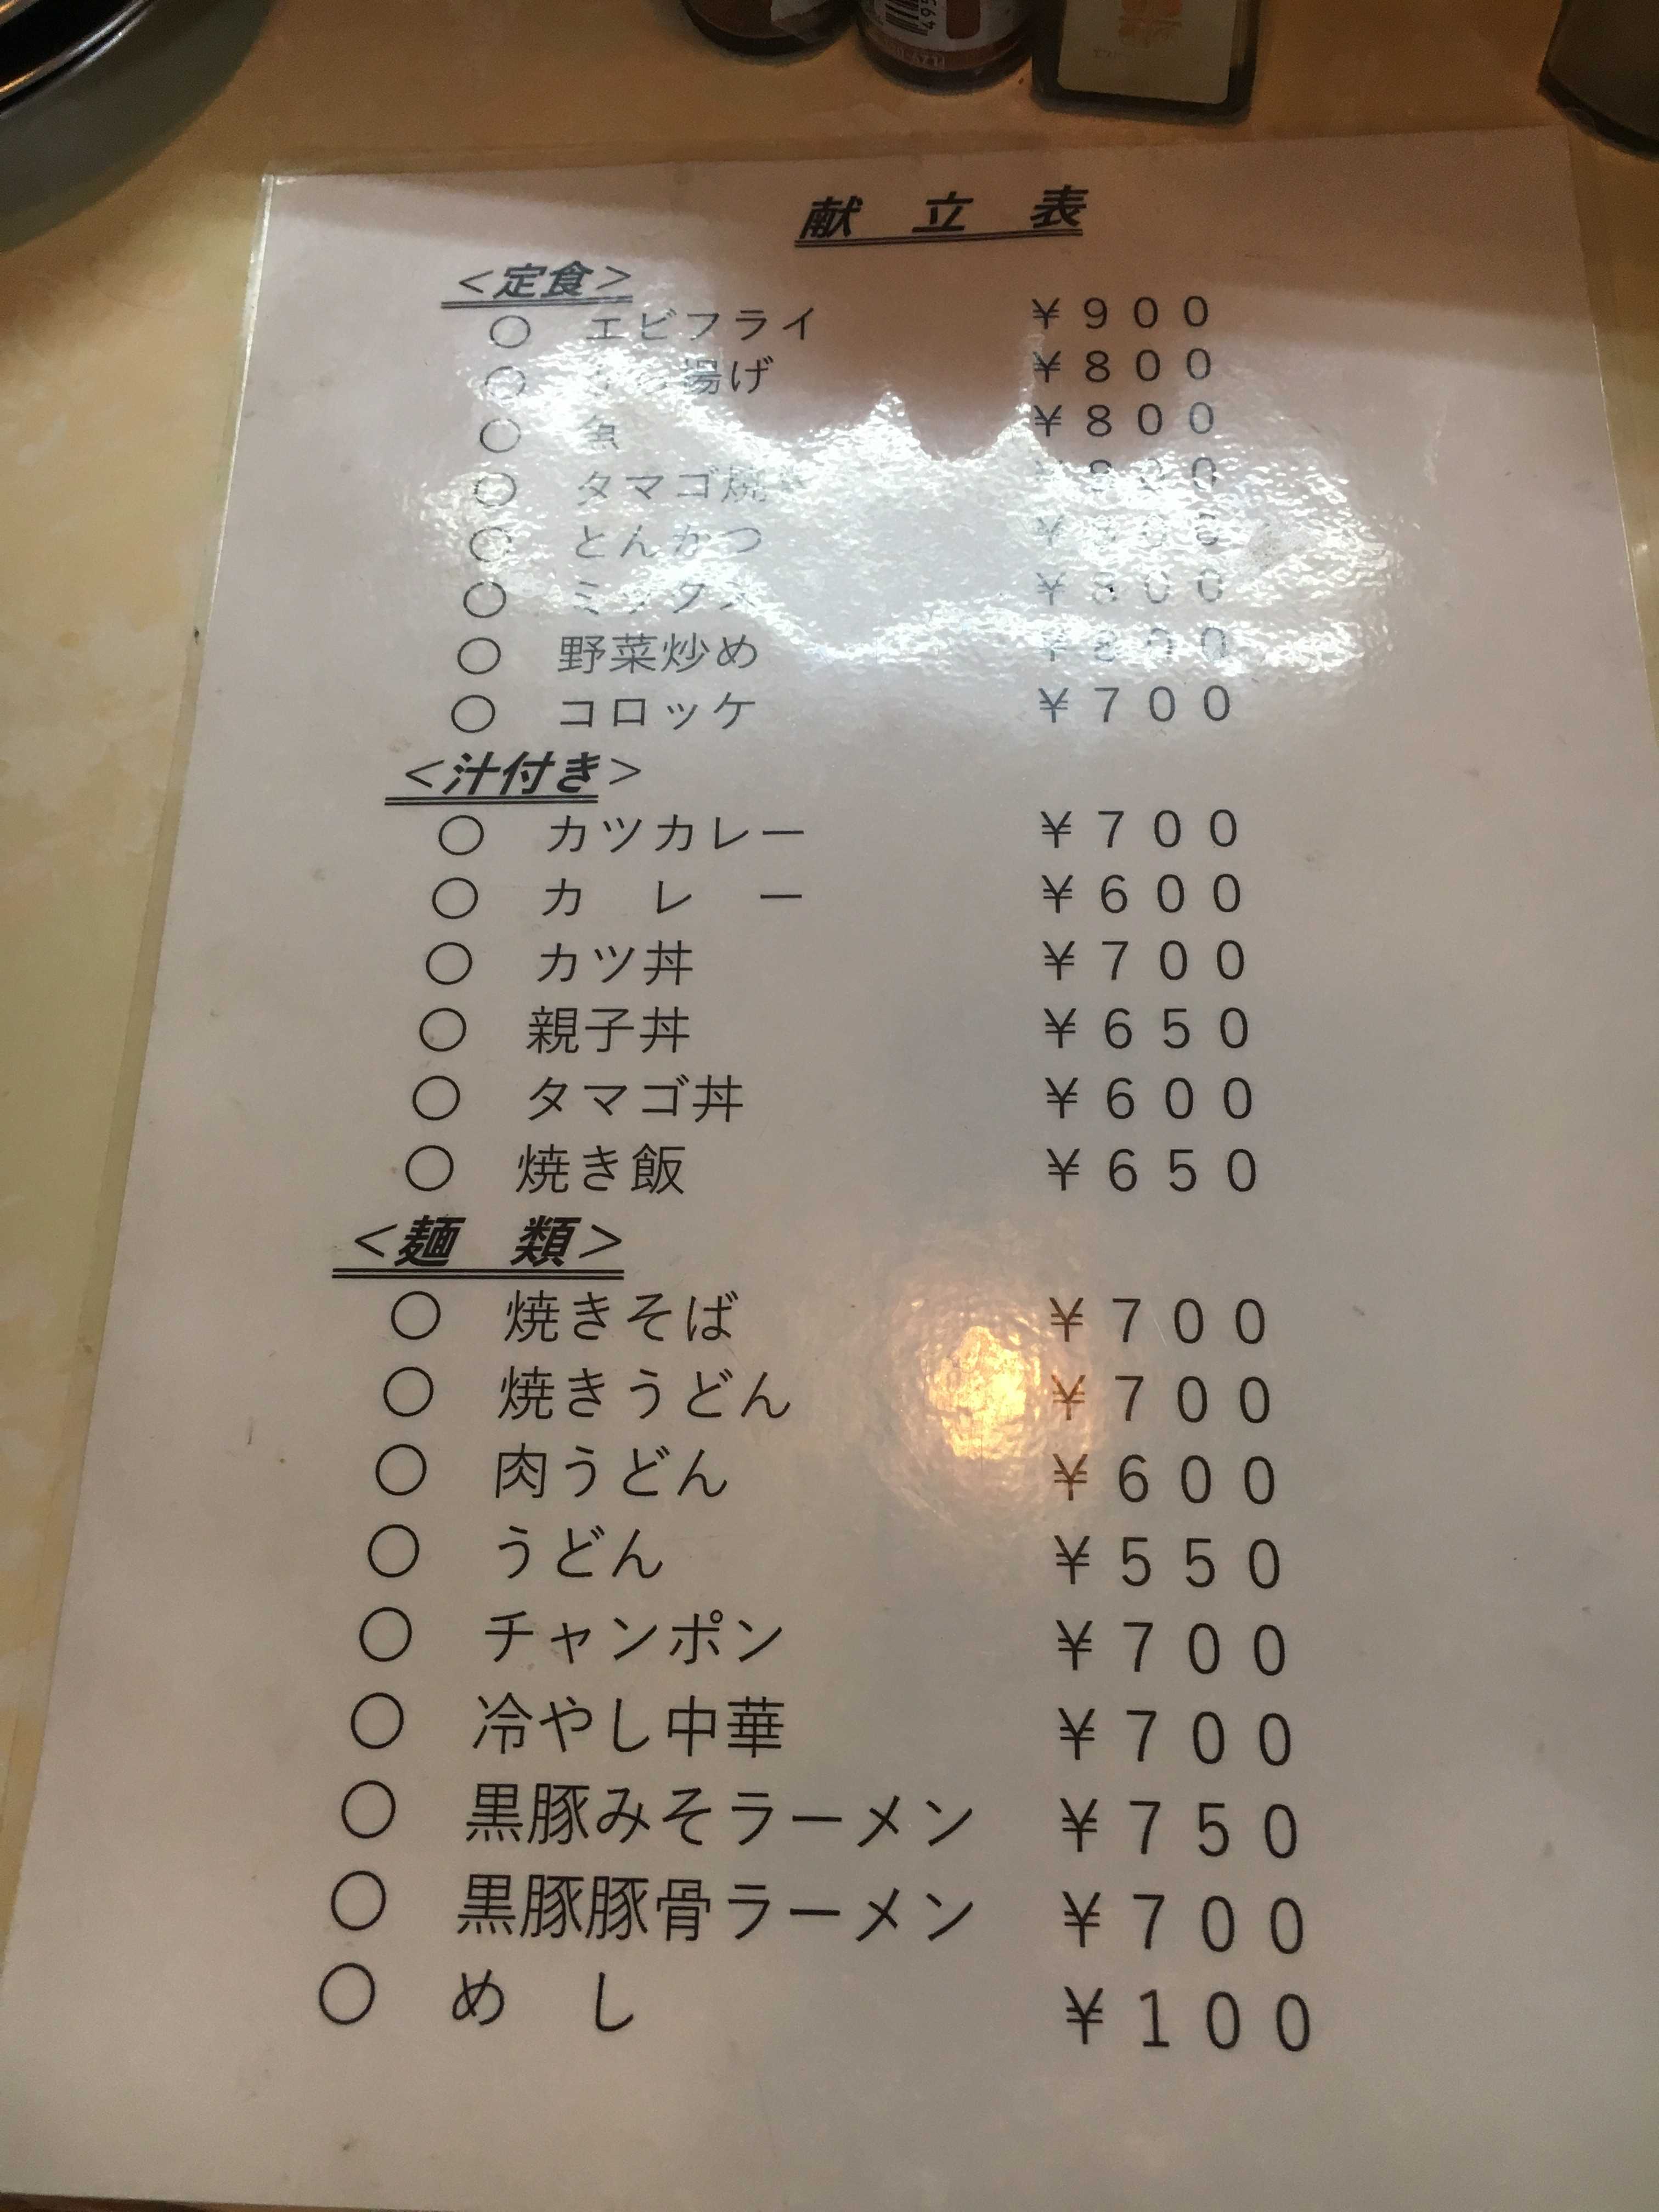 献 立 表
<定食>
○ エビフライ ¥900
○ 揚げ ¥800
○ 魚 ¥800
○ タマゴ焼き ¥800
○ とんかつ
○ ミックス ¥800
○ 野菜炒め ¥800
○ コロッケ ¥700
<汁付き>
○ カツカレー ¥700
○ カ レ ー ¥600
○ カツ丼 ¥700
○ 親子丼 ¥650
○ タマゴ丼 ¥600
○ 焼き飯 ¥650
<麺 類>
○ 焼きそば ¥700
○ 焼きうどん ¥700
○ 肉うどん ¥600
○ うどん ¥550
○ チャンポン ¥700
○ 冷やし中華 ¥700
○ 黒豚みそラーメン ¥750
○ 黒豚豚骨ラーメン ¥700
○ め し ¥100